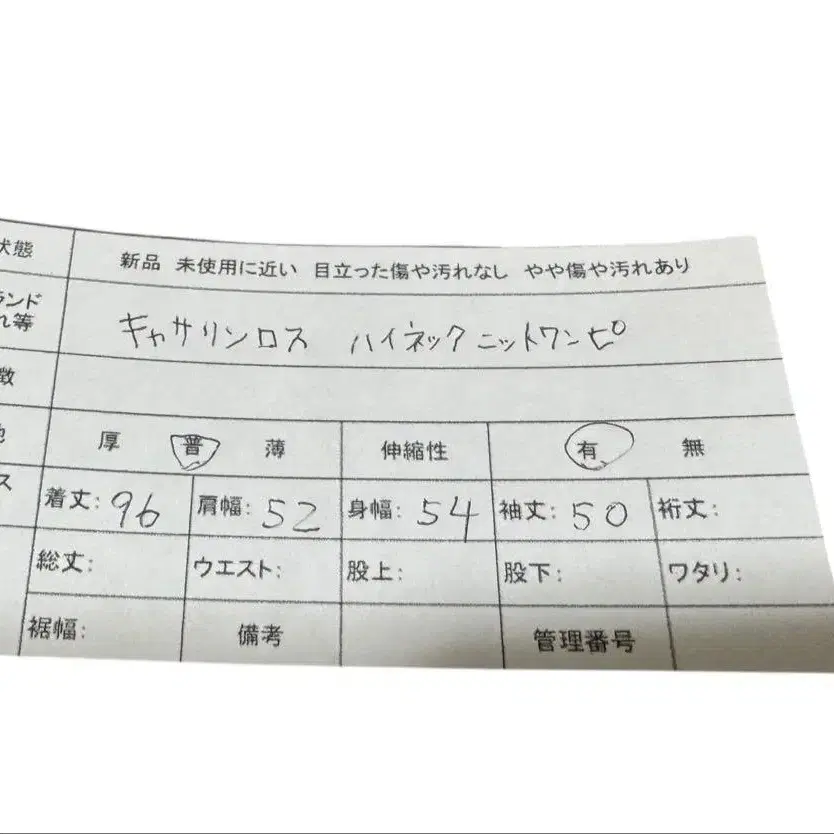 状態 新品 未使用に近い 目立った傷や汚れなし やや傷や汚れあり
ランド
れ等 キャサリンロス ハイネックニットワンピ
徴
地 厚 普 薄 伸縮性 有 無
ス 着丈: 96 肩幅: 52 身幅: 54 袖丈: 50 裄丈:
総丈: ウエスト: 股上: 股下: ワタリ:
裾幅: 備考 管理番号